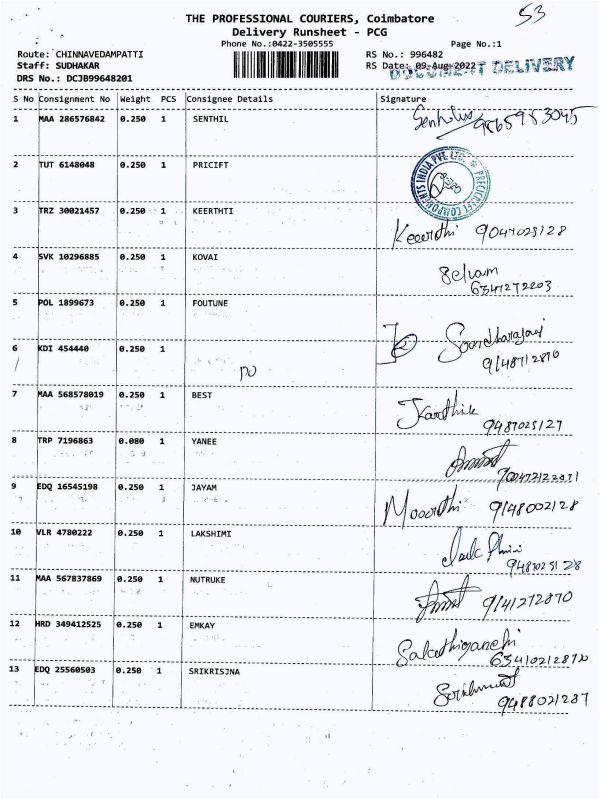 53
THE PROFESSIONAL COURIERS, Coimbatore
Delivery Runsheet - PCG
Phone No.:0422-3505555 Page No.:1
Route: CHINNAVEDAMPATTI RS No.: 996482
Staff: SUDHAKAR RS Date: 09-Aug-2022
DOCUMENT DELIVERY
DRS No.: DCJB99648201
S No Consignment No Weight PCS Consignee Details Signature
1 MAA 286576842 0.250 1 SENTHIL 9865953045
2 TUT 6148048 0.250 1 PRICIFT
3 TRZ 30021457 0.250 1 KEERTHTI Keerthi 9047025128
4 SVK 10296885 0.250 1 KOVAI Selvam 6341272203
5 POL 1899673 0.250 1 FOUTUNE
6 KDI 454440 0.250 1 9148712870
7 MAA 568578019 0.250 1 BEST Karthik 9487025127
8 TRP 7196863 0.080 1 YANEE
9 EDQ 16545198 0.250 1 JAYAM Moorthi 9148002128
10 VLR 4780222 0.250 1 LAKSHIMI 9487025128
11 MAA 567837869 0.250 1 NUTRUKE 9141272870
12 HRD 349412525 0.250 1 EMKAY
13 EDQ 25560503 0.250 1 SRIKRISJNA 9488021287